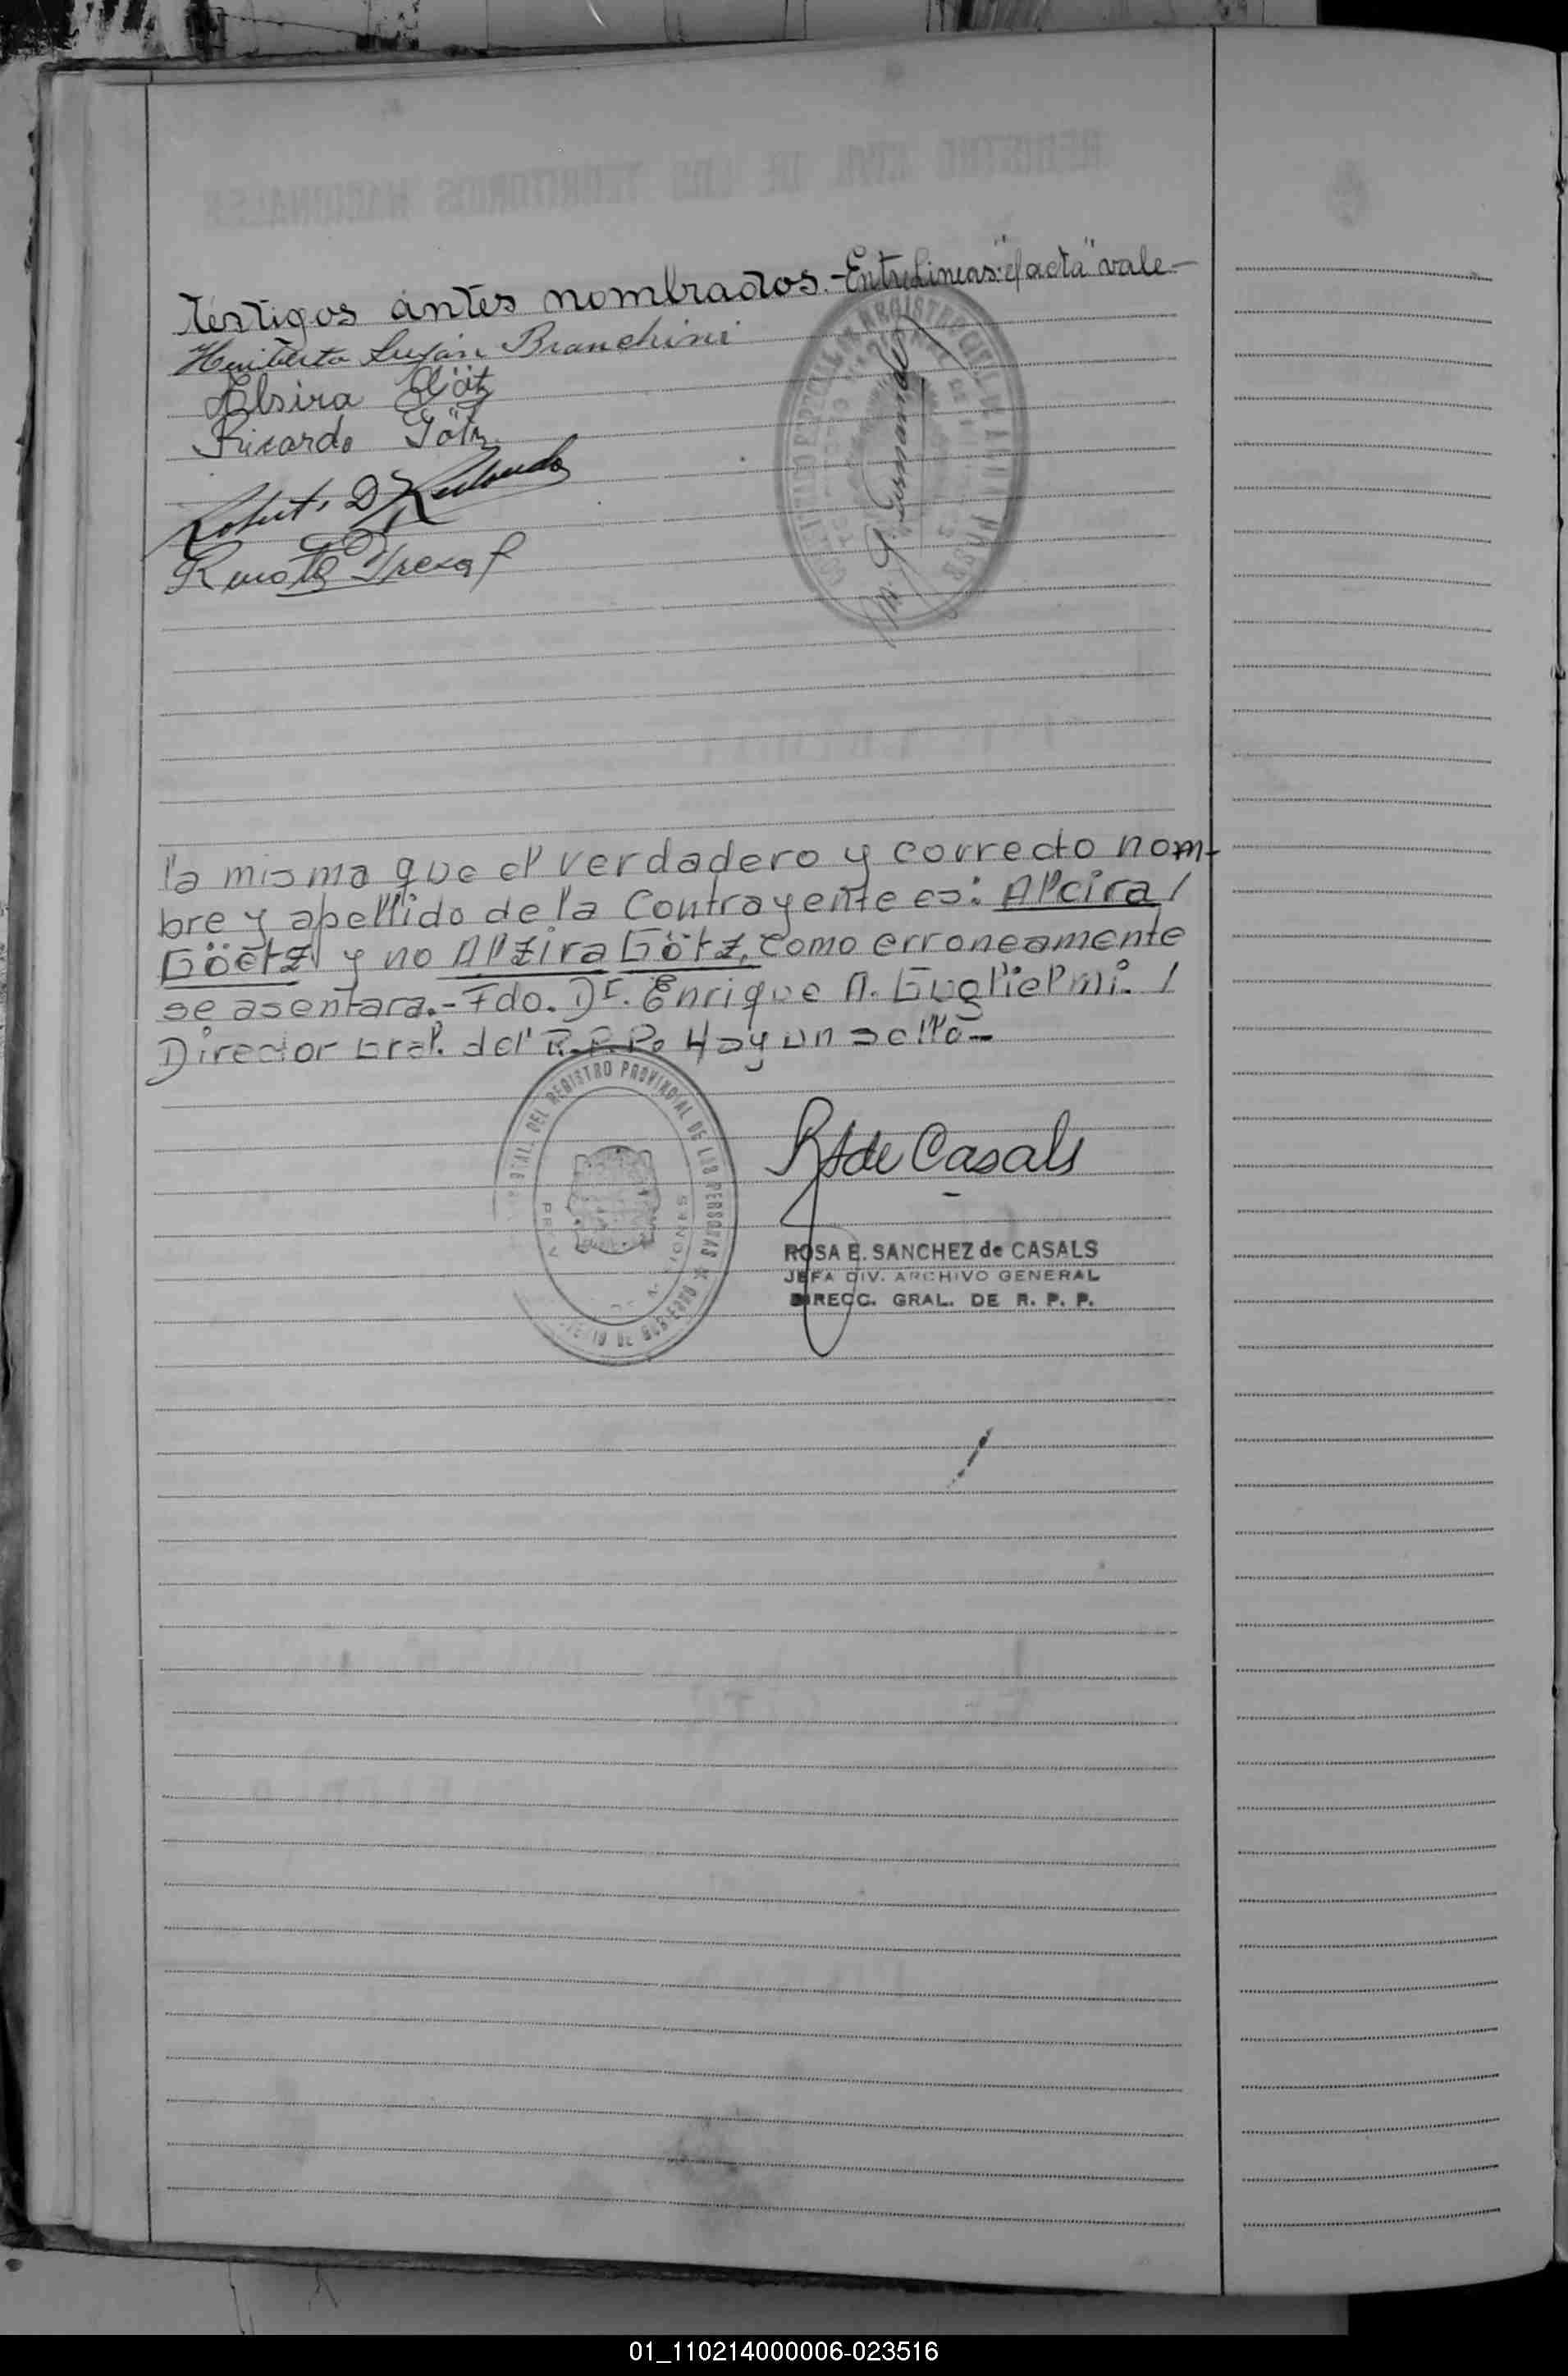 testigos antes nombrados.-Entrelineas: "el acta" vale-
Heriberto Luján Branchini
Alsira Götz
Ricardo Götz
Roberto D.
Renato
M. G.
la misma que el verdadero y correcto nom-
bre y apellido de la Contrayente es: Alcira /
Göetz y no Alzira Götz, como erroneamente
se asentara.- Fdo. Dr. Enrique A. Guglielmi. /
Director Gral. del R.P.P. Hay un sello-
GRAL. DEL REGISTRO PROVINCIAL DE LAS PERSONAS
R S de Casals
ROSA E. SANCHEZ de CASALS
JEFA DIV. ARCHIVO GENERAL
DIRECC. GRAL. DE R. P. P.
01_110214000006-023516